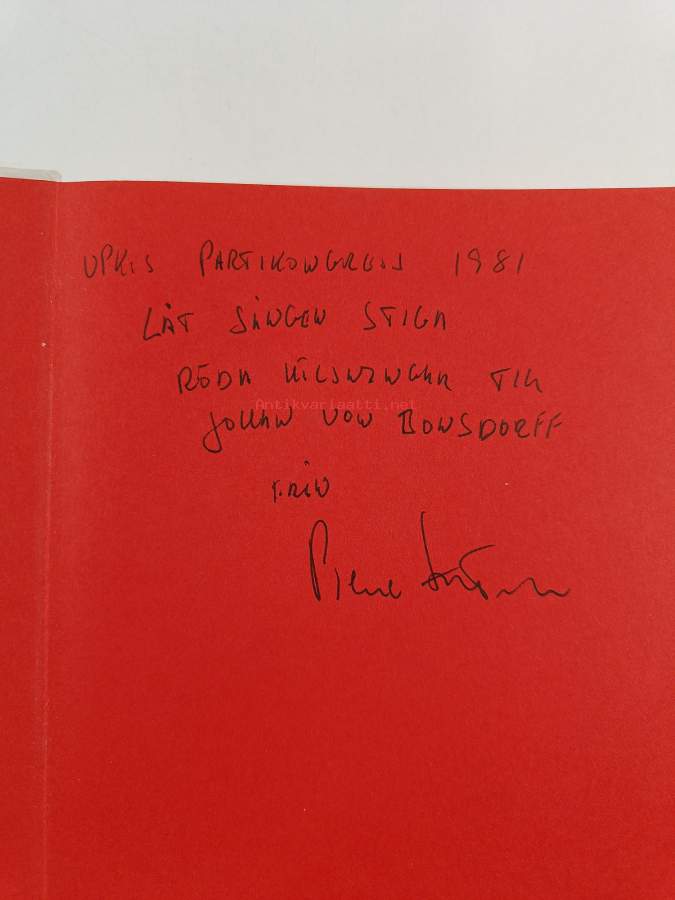 VPK:s PARTIKONGRESS 1981
LÅT SÅNGEN STIGA
RÖDA HÄLSNINGAR TILL
Antikvariaatti.net
JOHAN VON BONSDORFF
FRÅN
Pierre Ström